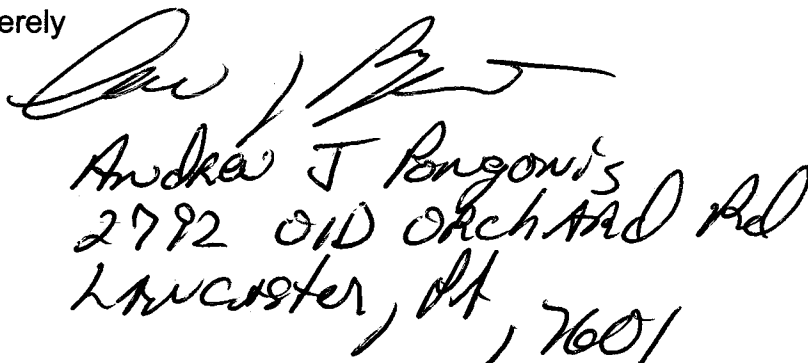 erely
Andrew J Pongonis
2792 Old ORchARd Rd
LANCAster, PA
, 17601